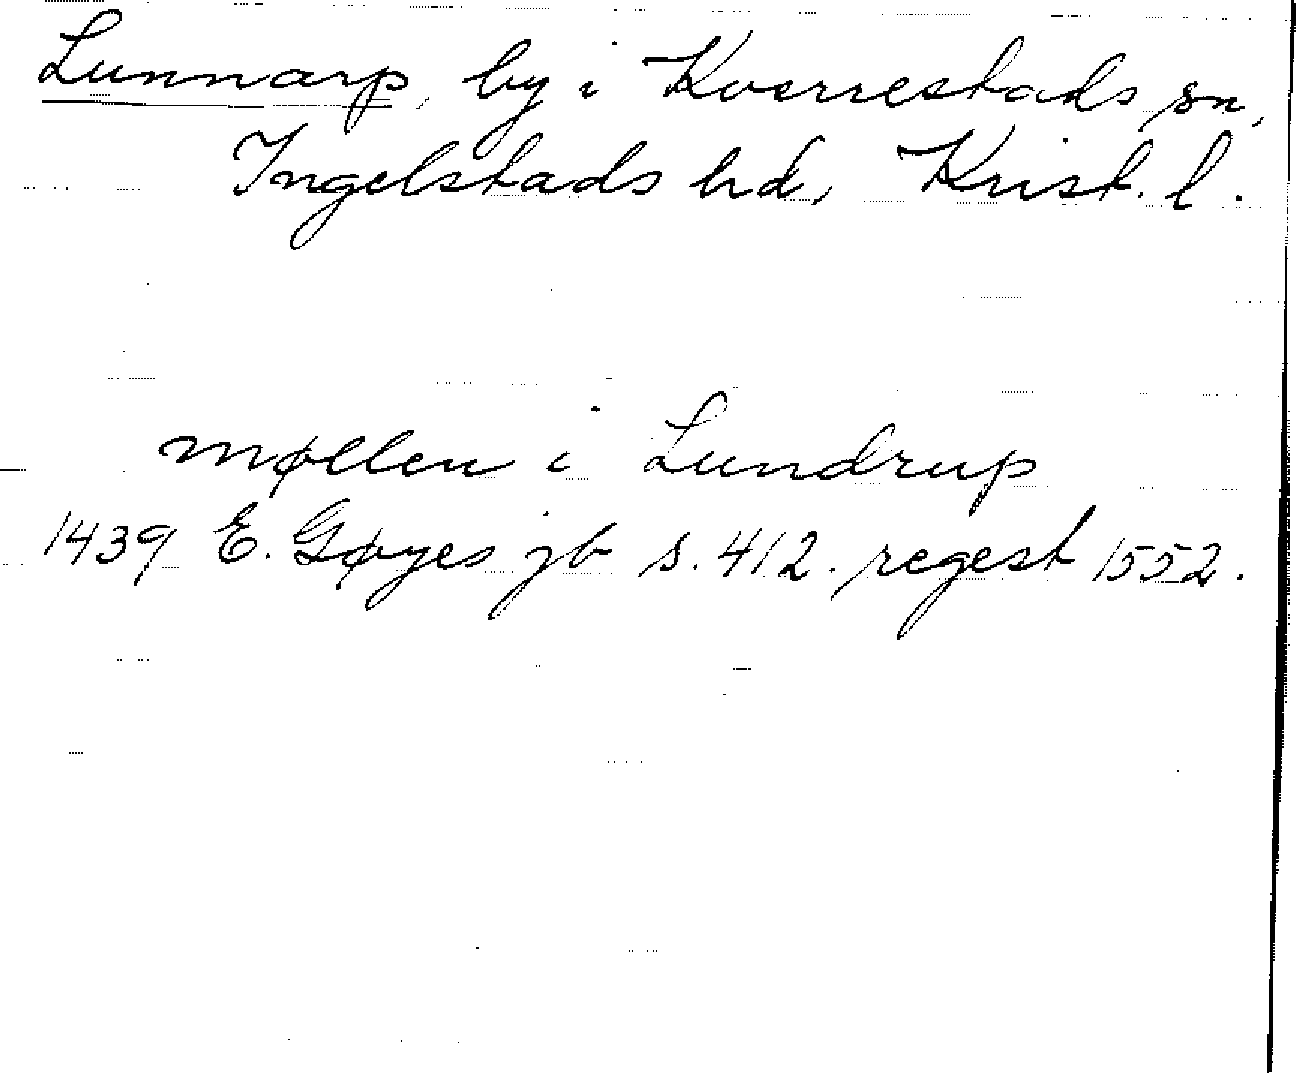 Lunnarp, by i Kverrestads sn,
Ingelstads hd, Krist. l.
møllen i Lundrup
1439 E. Gøyes jb s. 412. regest 1552.